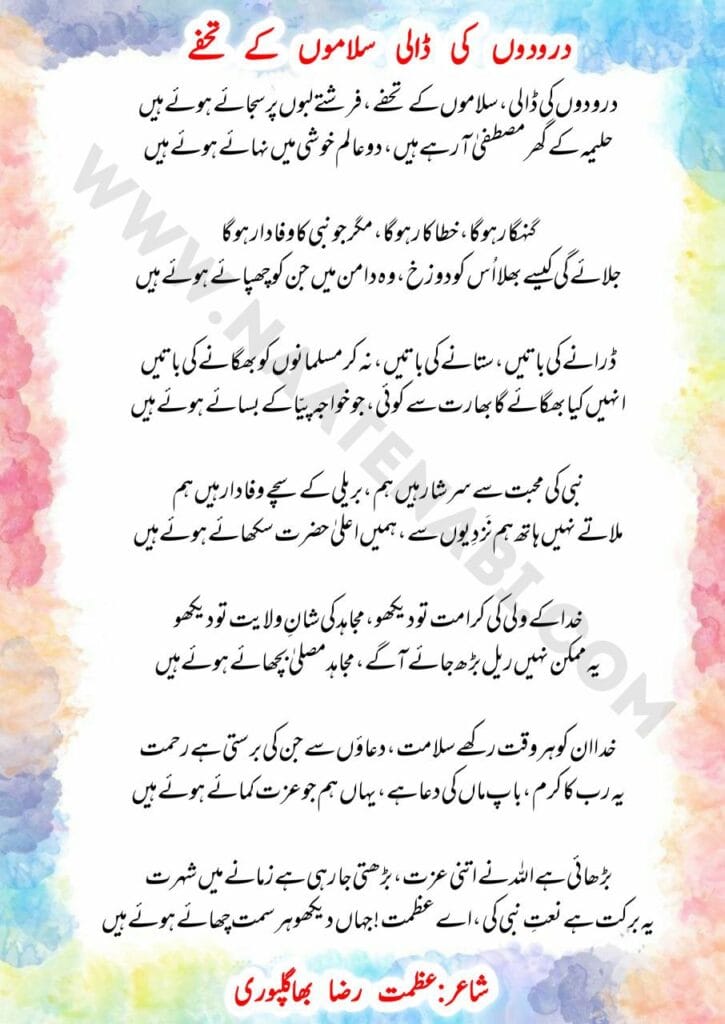 درودوں کی ڈالی سلاموں کے تحفے
درودوں کی ڈالی، سلاموں کے تحفے، فرشتے لبوں پر سجائے ہوئے ہیں
حلیمہ کے گھر مصطفیٰ آ رہے ہیں، دو عالم خوشی میں نہائے ہوئے ہیں
گنہگار ہوگا، خطا کار ہوگا، مگر جو نبی کا وفادار ہوگا
جلائے گی کیسے بھلا اُس کو دوزخ، وہ دامن میں جن کو چھپائے ہوئے ہیں
ڈرانے کی باتیں، ستانے کی باتیں، نہ کر مسلمانوں کو بھگانے کی باتیں
انہیں کیا بھگائے گا بھارت سے کوئی، جو خواجہ پیّا کے بسائے ہوئے ہیں
نبی کی محبت سے سرشار ہیں ہم، بریلی کے سچے وفادار ہیں ہم
ملاتے نہیں ہاتھ ہم نَزدِیوں سے، ہمیں اعلیٰ حضرت سکھائے ہوئے ہیں
خدا کے ولی کی کرامت تو دیکھو، مجاہد کی شانِ ولایت تو دیکھو
یہ ممکن نہیں ریل بڑھ جائے آگے، مجاہد مصلیٰ بچھائے ہوئے ہیں
خدا ان کو ہر وقت رکھے سلامت، دعاؤں سے جن کی برستی ہے رحمت
یہ رب کا کرم، باپ ماں کی دعا ہے، یہاں ہم جو عزت کمائے ہوئے ہیں
بڑھائی ہے اللہ نے اتنی عزت، بڑھتی جا رہی ہے زمانے میں شہرت
یہ برکت ہے نعتِ نبی کی، اے عظمت! جہاں دیکھو ہر سمت چھائے ہوئے ہیں
شاعر: عظمت رضا بھاگلپوری
WWW.NAATENABI.COM